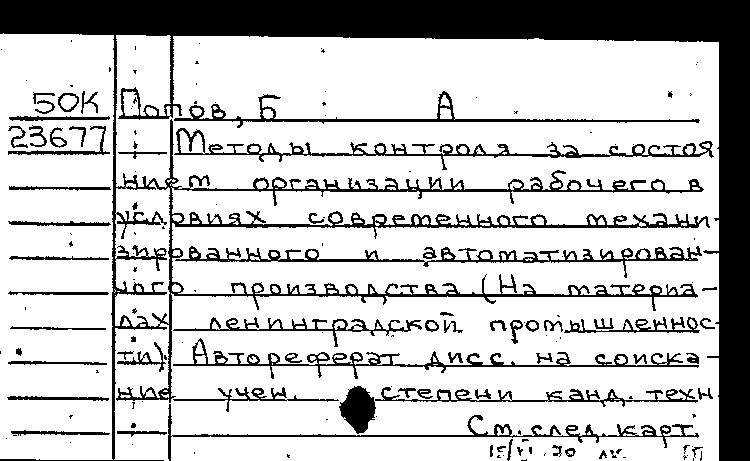 50К Попов, Б А
23677 Методы контроля за состоя-
нием организации рабочего в
условиях современного механи-
зированного и автоматизирован-
ного производства. (На материа-
лах ленинградской промышленнос-
ти). Автореферат дисс. на соиска-
ние учен. степени канд. техн
См. след. карт.